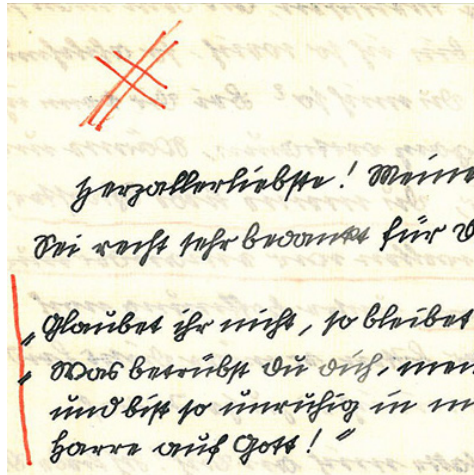 Herzallerliebste! Meine
Sei recht sehr bedankt für d
„Glaubet ihr nicht, so bleibet
„Was betrübst du dich, mei
und bist so unruhig in m
Harre auf Gott!“